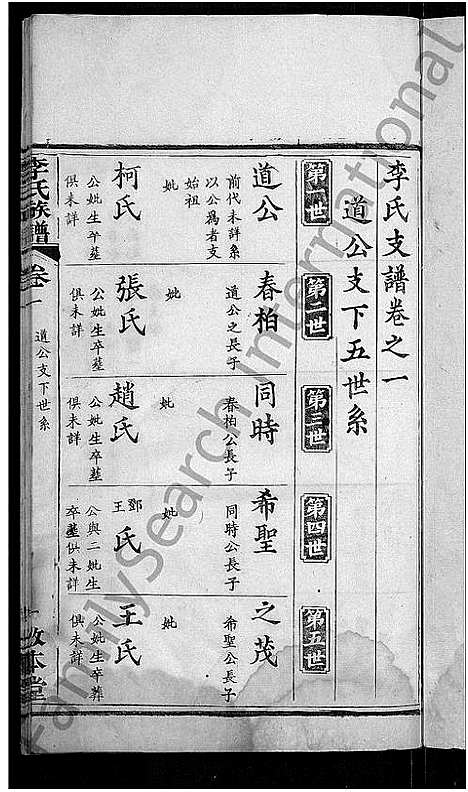 李氏支譜卷之一
道公支下五世系
第一世
道公
前代未詳系
以公爲者支
始祖
妣
柯氏
公妣生卒墓
俱未詳
第二世
春柏
道公之長子
妣
張氏
公妣生卒墓
俱未詳
第三世
同時
春柏公長子
妣
趙氏
公妣生卒墓
俱未詳
第四世
希聖
同時公長子
妣
鄧王氏
公與二妣生
卒墓俱未詳
第五世
之茂
希聖公長子
妣
王氏
公妣生卒葬
俱未詳
李氏族譜
卷一
道公支下世系
一
敦本堂
FamilySearch International